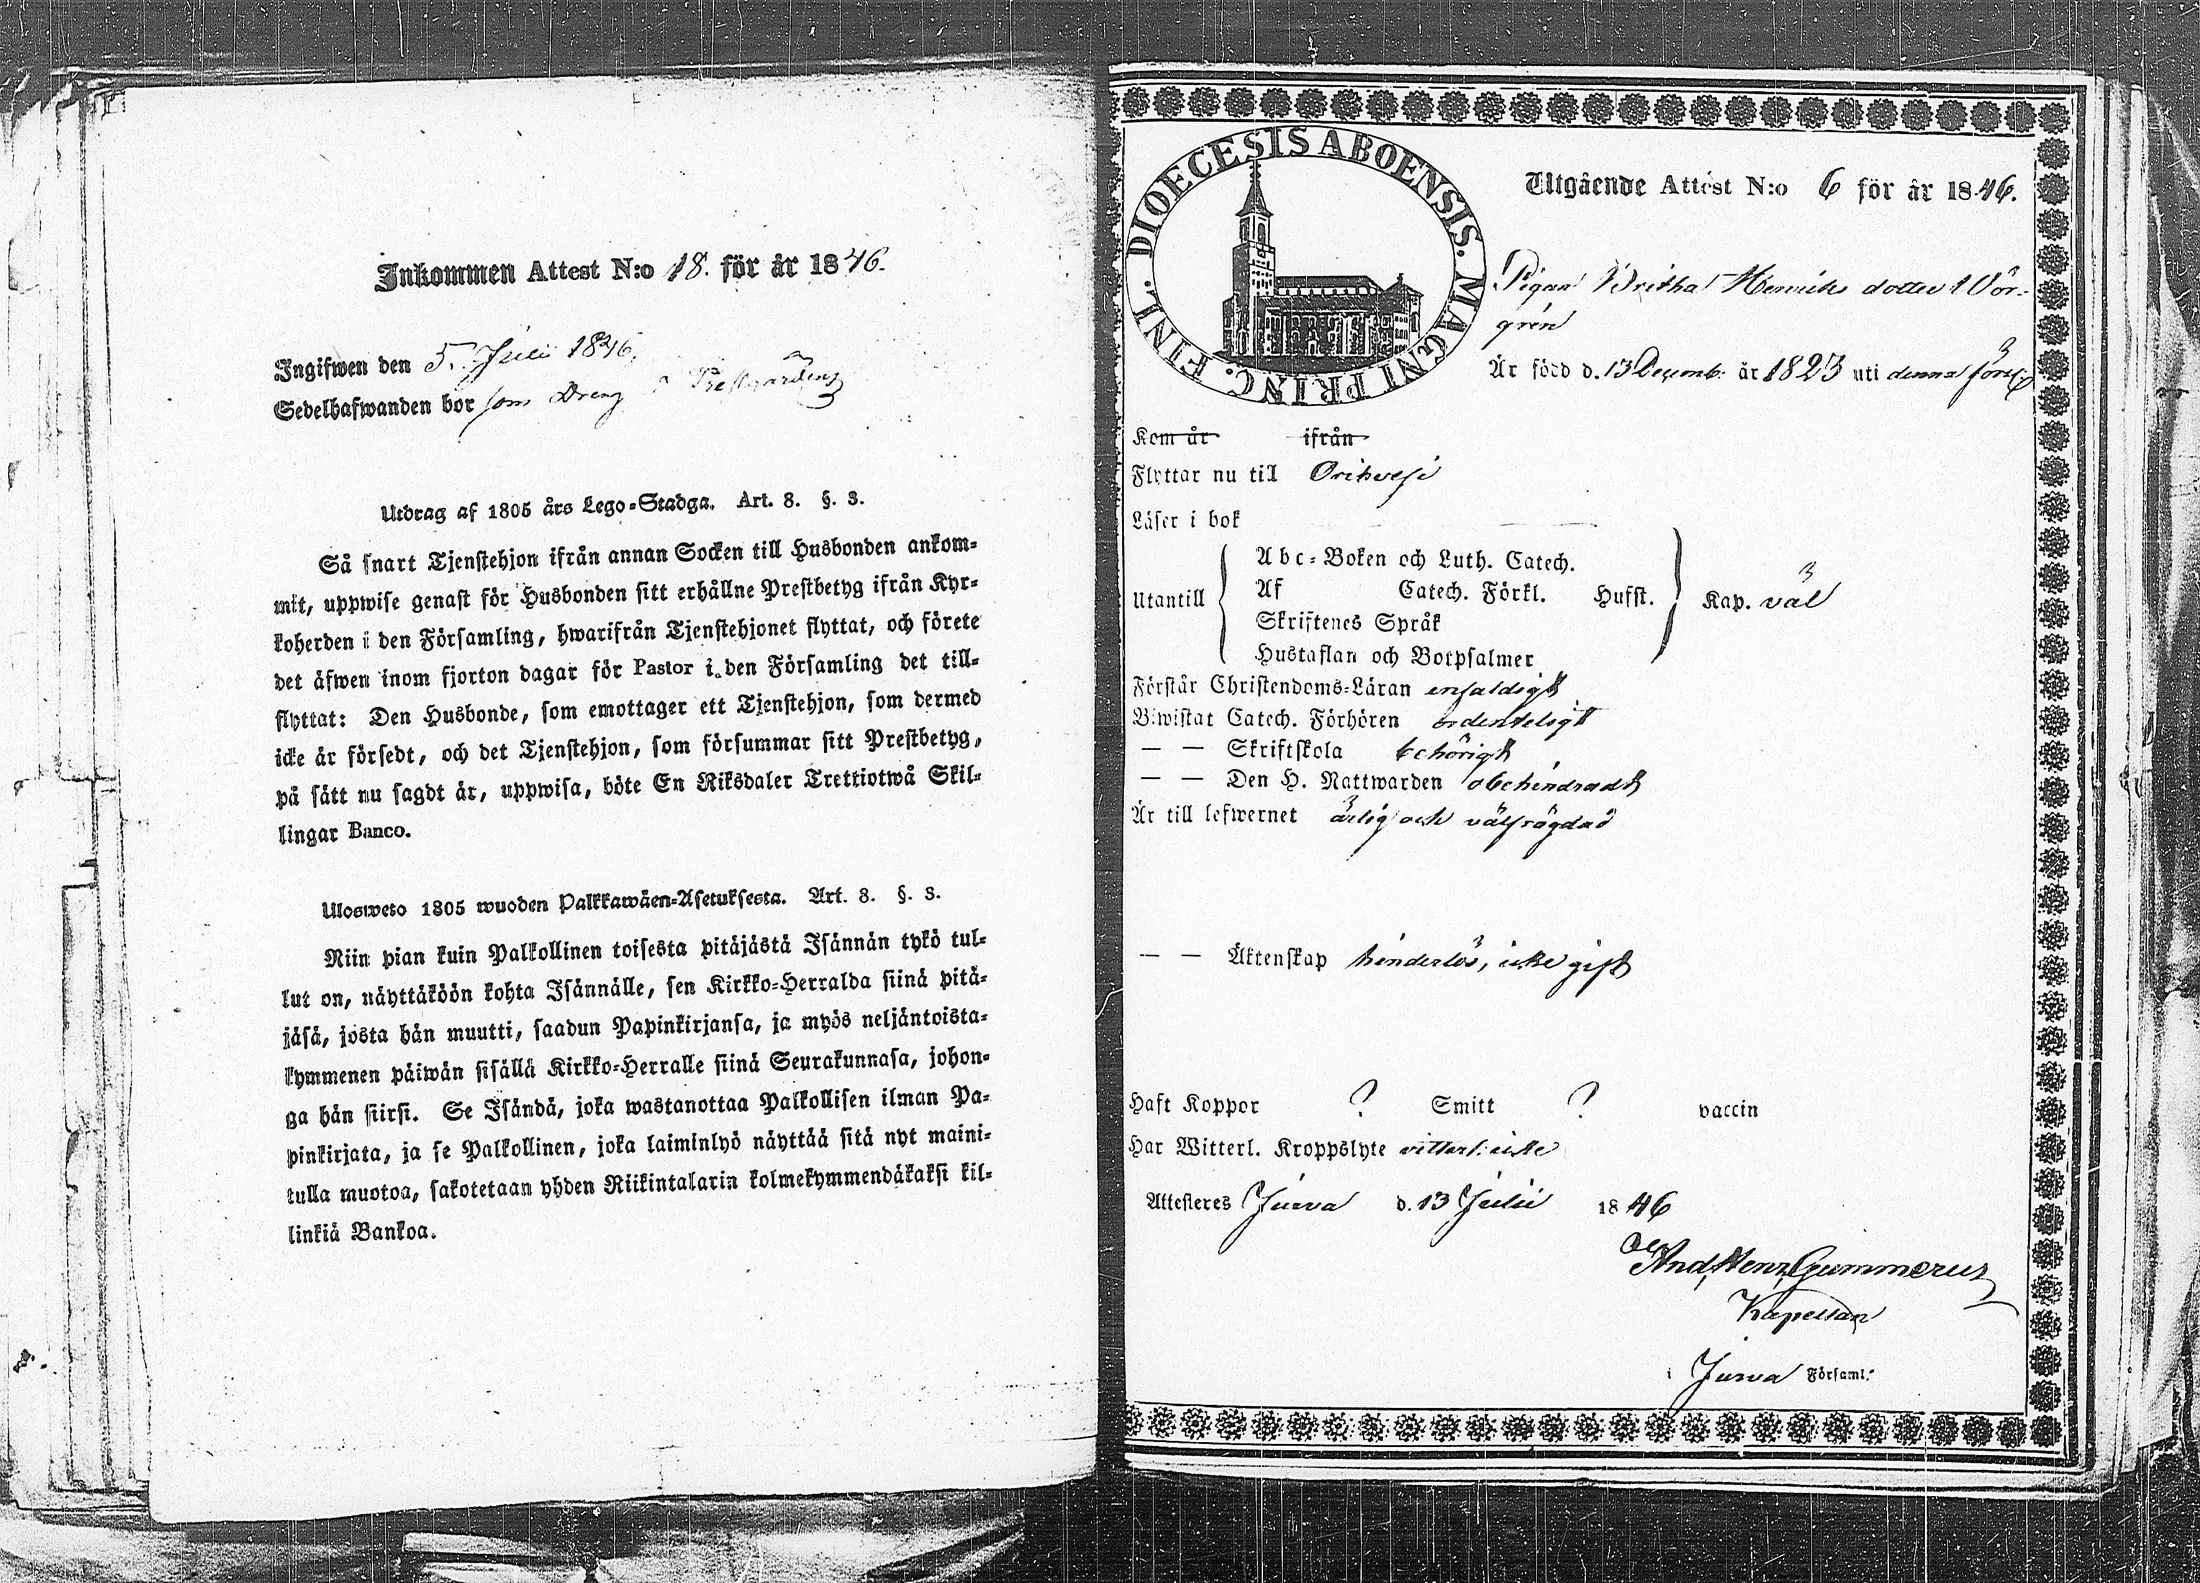 Inkommen Attest N:o 18. för år 1846.
Ingifwen den 5. Julii 1846.
Sedelhafwanden bor som Dreng i Prestgården
Utdrag af 1805 års Lego-Stadga. Art. 8. §. 3.
Så snart Tjenstehjon ifrån annan Socken till Husbonden ankom-
mit, uppwise genast för Husbonden sitt erhållne Prestbetyg ifrån Kyr-
koherden i den Församling, hwarifrån Tjenstehjonet flyttat, och förete
det äfwen inom fjorton dagar för Pastor i den Församling det till-
flyttat: Den Husbonde, som emottager ett Tjenstehjon, som dermed
icke är försedt, och det Tjenstehjon, som försummar sitt Prestbetyg,
på sätt nu sagdt är, uppwisa, böte En Riksdaler Trettiotwå Skil-
lingar Banco.
Ulosweto 1805 wuoden Palkkawäen-Asetuksesta. Art. 8. §. 3.
Niin pian kuin Palkollinen toisesta pitäjästä Isännän tykö tul-
lut on, näyttäköön kohta Isännälle, sen Kirkko-Herralda siinä pitä-
jäsä, josta hän muutti, saadun Papinkirjansa, ja myös neljäntoista-
kymmenen päiwän sisällä Kirkko-Herralle siinä Seurakunnasa, johon-
ga hän siirsi. Se Isändä, joka wastanottaa Palkollisen ilman Pa-
pinkirjata, ja se Palkollinen, joka laiminlyö näyttää sitä nyt maini-
tulla muotoa, sakotetaan yhden Riikintalarin kolmekymmendäkaksi kil-
linkiä Bankoa.
DIOECESIS ABOENSIS. MAGNI PRINC. FINL.
Utgående Attest N:o 6 för år 1846.
Pigan Britha Henriks dotter Wör-
grén
Är född d. 13 Decemb: år 1823 uti denna förs:g
Kom år ifrån
Flyttar nu till Orihvesi
Läser i bok
Utantill
Abc-Boken och Luth. Catech.
Af Catech. Förkl. Husst.
Skriftenes Språk
Hustaflan och Botpsalmer
Kap. väl
Förstår Christendoms-Läran enfaldigt
Biwistat Catech. Förhören ordenteligt
— — Skriftskola behörigt
— — Den H. Nattwarden obehindradt
Är till lefwernet ärlig och välfrägdad
— — Äktenskap hinderlös, icke gift
Haft Koppor ? Smitt ? vaccin
Har Witterl. Kroppslyte vitterl: icke
Attesteres Jurva d. 13 Julii 1846
And, Henr, Gummerus
Kapellan
i Jurva Församl: